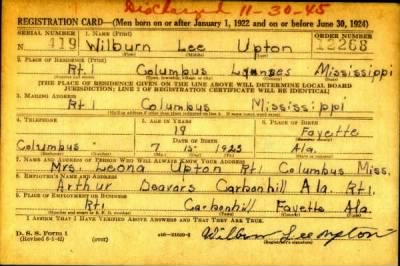 Discharged 11-30-45
REGISTRATION CARD—(Men born on or after January 1, 1922 and on or before June 30, 1924)
SERIAL NUMBER 1. NAME (Print) ORDER NUMBER
N 419 Wilburn Lee Upton 12268
2. PLACE OF RESIDENCE (Print)
Rt. 1 Columbus Lowndes Mississippi
[THE PLACE OF RESIDENCE GIVEN ON THE LINE ABOVE WILL DETERMINE LOCAL BOARD
JURISDICTION; LINE 2 OF REGISTRATION CERTIFICATE WILL BE IDENTICAL]
3. MAILING ADDRESS
Rt 1 Columbus Mississippi
[Mailing address if other than place indicated on line 2. If same insert word same]
4. TELEPHONE 5. AGE IN YEARS 6. PLACE OF BIRTH
19 Fayette
Columbus DATE OF BIRTH
7 15 1923 Ala.
7. NAME AND ADDRESS OF PERSON WHO WILL ALWAYS KNOW YOUR ADDRESS
Mrs. Leona Upton Rt1 Columbus Miss.
8. EMPLOYER'S NAME AND ADDRESS
Arthur Deavars Carbonhill Ala. Rt1.
9. PLACE OF EMPLOYMENT OR BUSINESS
Rt1 Carbonhill Fayette Ala.
I AFFIRM THAT I HAVE VERIFIED ABOVE ANSWERS AND THAT THEY ARE TRUE.
D. S. S. Form 1
(Revised 6-1-42) (over) 16—21630-2 Wilburn Lee Upton
(Registrant's signature)